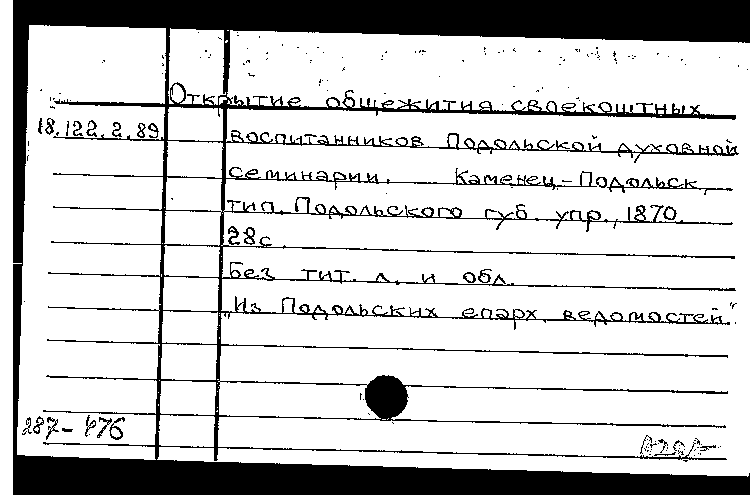 Открытие общежития своекоштных
18.122.2.89. воспитанников Подольской духовной
семинарии. Каменец-Подольск,
тип. Подольского губ. упр., 1870.
28с.
Без тит. л. и обл.
„Из Подольских епарх. ведомостей."
287-476